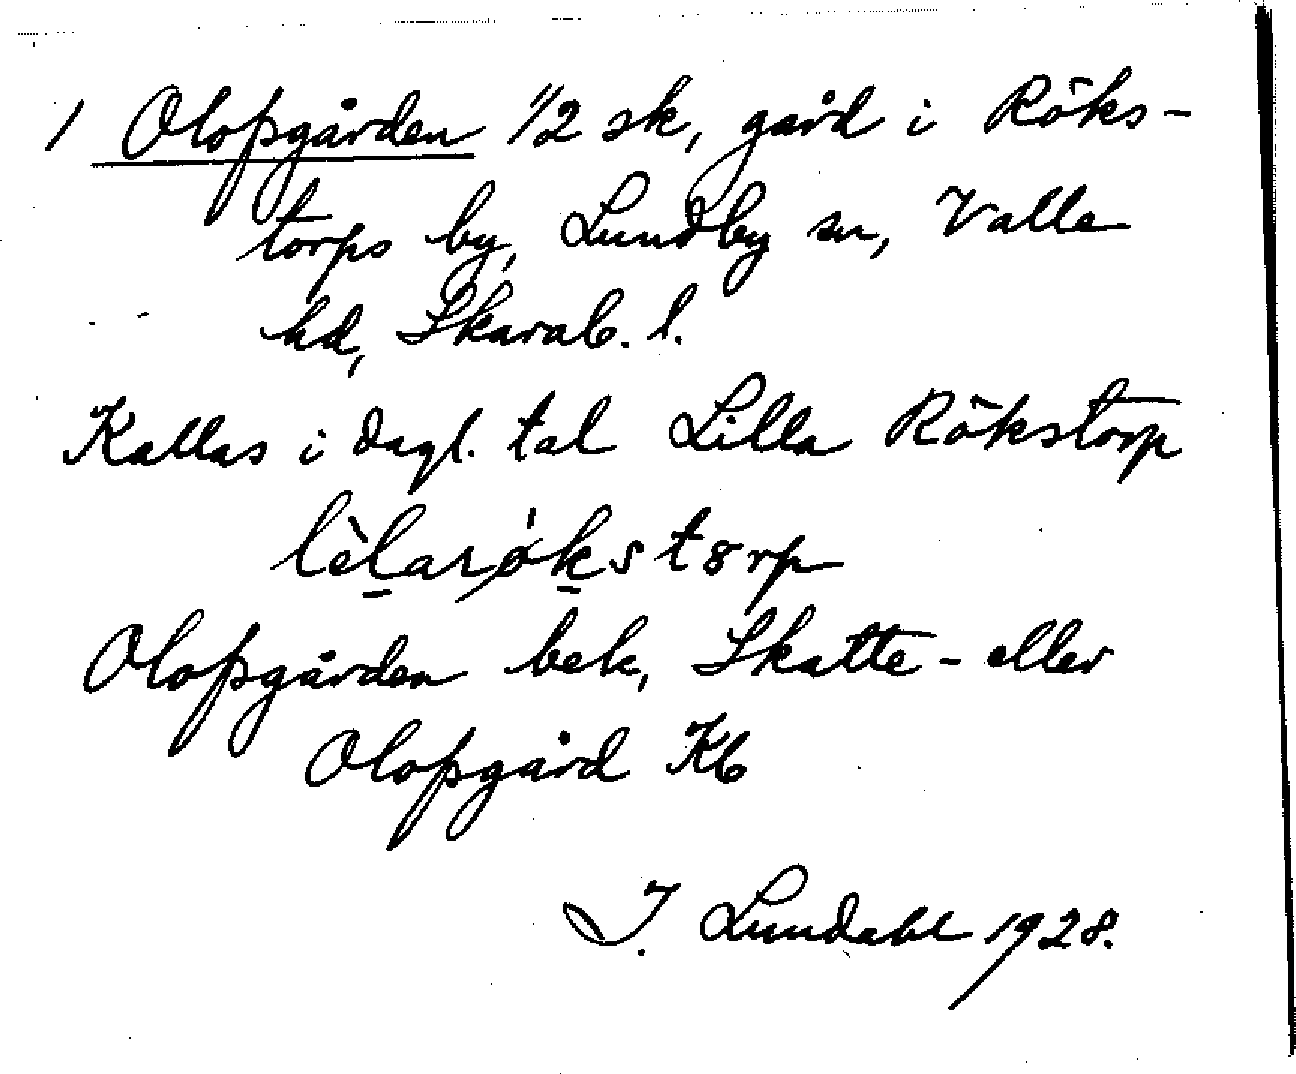 1 Olofsgården 1/2 sk, gård i Röks-
torps by, Lundby sn, Valle
hd, Skarab. l.
Kallas i dagl. tal Lilla Rökstorp
Olofsgården bek, Skatte- eller
Olofsgård Kb
I. Lundahl 1928.